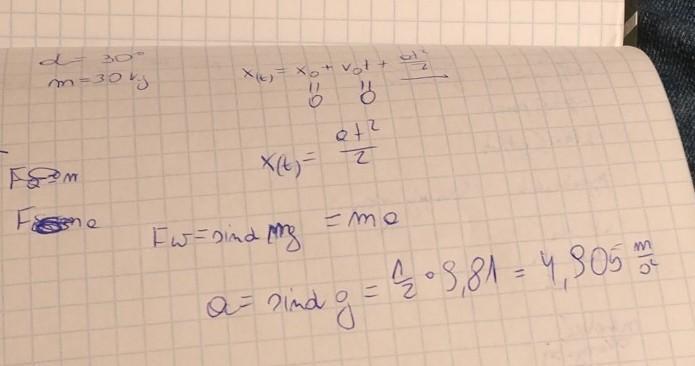 α = 30°
m = 30 kg
x(t) = x₀ + v₀t + at²/2
0 0
x(t) = at²/2
F
F a
Fw = sinα mg = ma
a = sinα g = 1/2 · 9,81 = 4,905 m/s²